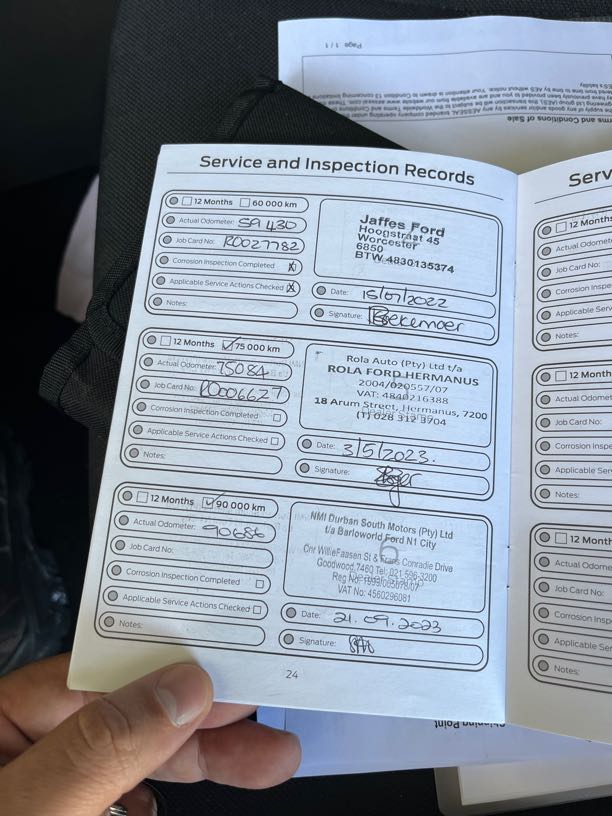 Page 1 / 1
Terms and Conditions of Sale
Service and Inspection Records
12 Months 60 000 km
Actual Odometer: 59 430
Job Card No: R0027782
Corrosion Inspection Completed X
Applicable Service Actions Checked X
Notes:
Jaffes Ford
Hoogstraat 45
Worcester
6850
BTW 4830135374
Date: 15/07/2022
Signature: Boekemoer
12 Months ✓ 75 000 km
Actual Odometer: 75084
Job Card No: R0006627
Corrosion Inspection Completed
Applicable Service Actions Checked
Notes:
Rola Auto (Pty) Ltd t/a
ROLA FORD HERMANUS
2004/020557/07
VAT: 4840216388
18 Arum Street, Hermanus, 7200
(T) 028 312 3704
Date: 3/5/2023.
Signature:
12 Months ✓ 90 000 km
Actual Odometer: 90686
Job Card No:
Corrosion Inspection Completed
Applicable Service Actions Checked
Notes:
NMI Durban South Motors (Pty) Ltd
t/a Barloworld Ford N1 City
Cnr WillieFaasen St & Frans Conradie Drive
Goodwood,7460 Tel: 021 596 3200
VAT No: 4560296081
Date: 21.09.2023
Signature:
24
Serv
12 Months
Actual Odometer
Job Card No:
Corrosion Inspe
Applicable Serv
Notes:
12 Month
Actual Odomet
Job Card No:
Corrosion Inspe
Applicable Ser
Notes:
12 Month
Actual Odome
Job Card No:
Corrosion Insp
Applicable Ser
Notes: